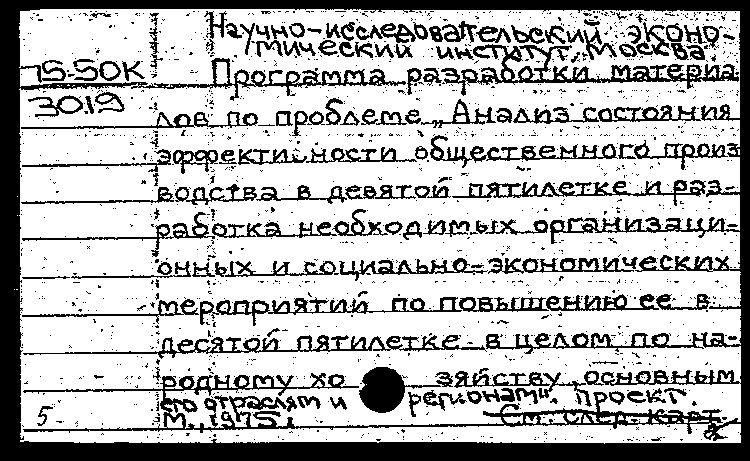 Научно-исследовательский эконо-
мический институт, Москва
75-50К
3019
Программа разработки материа
лов по проблеме „Анализ состояния
эффективности общественного произ
водства в девятой пятилетке и раз-
работка необходимых организаци-
онных и социально-экономических
мероприятий по повышению ее в
десятой пятилетке в целом по на-
родному хозяйству, основным
его отраслям и регионам". Проект.
М., 1975.
См. след. карт.
5